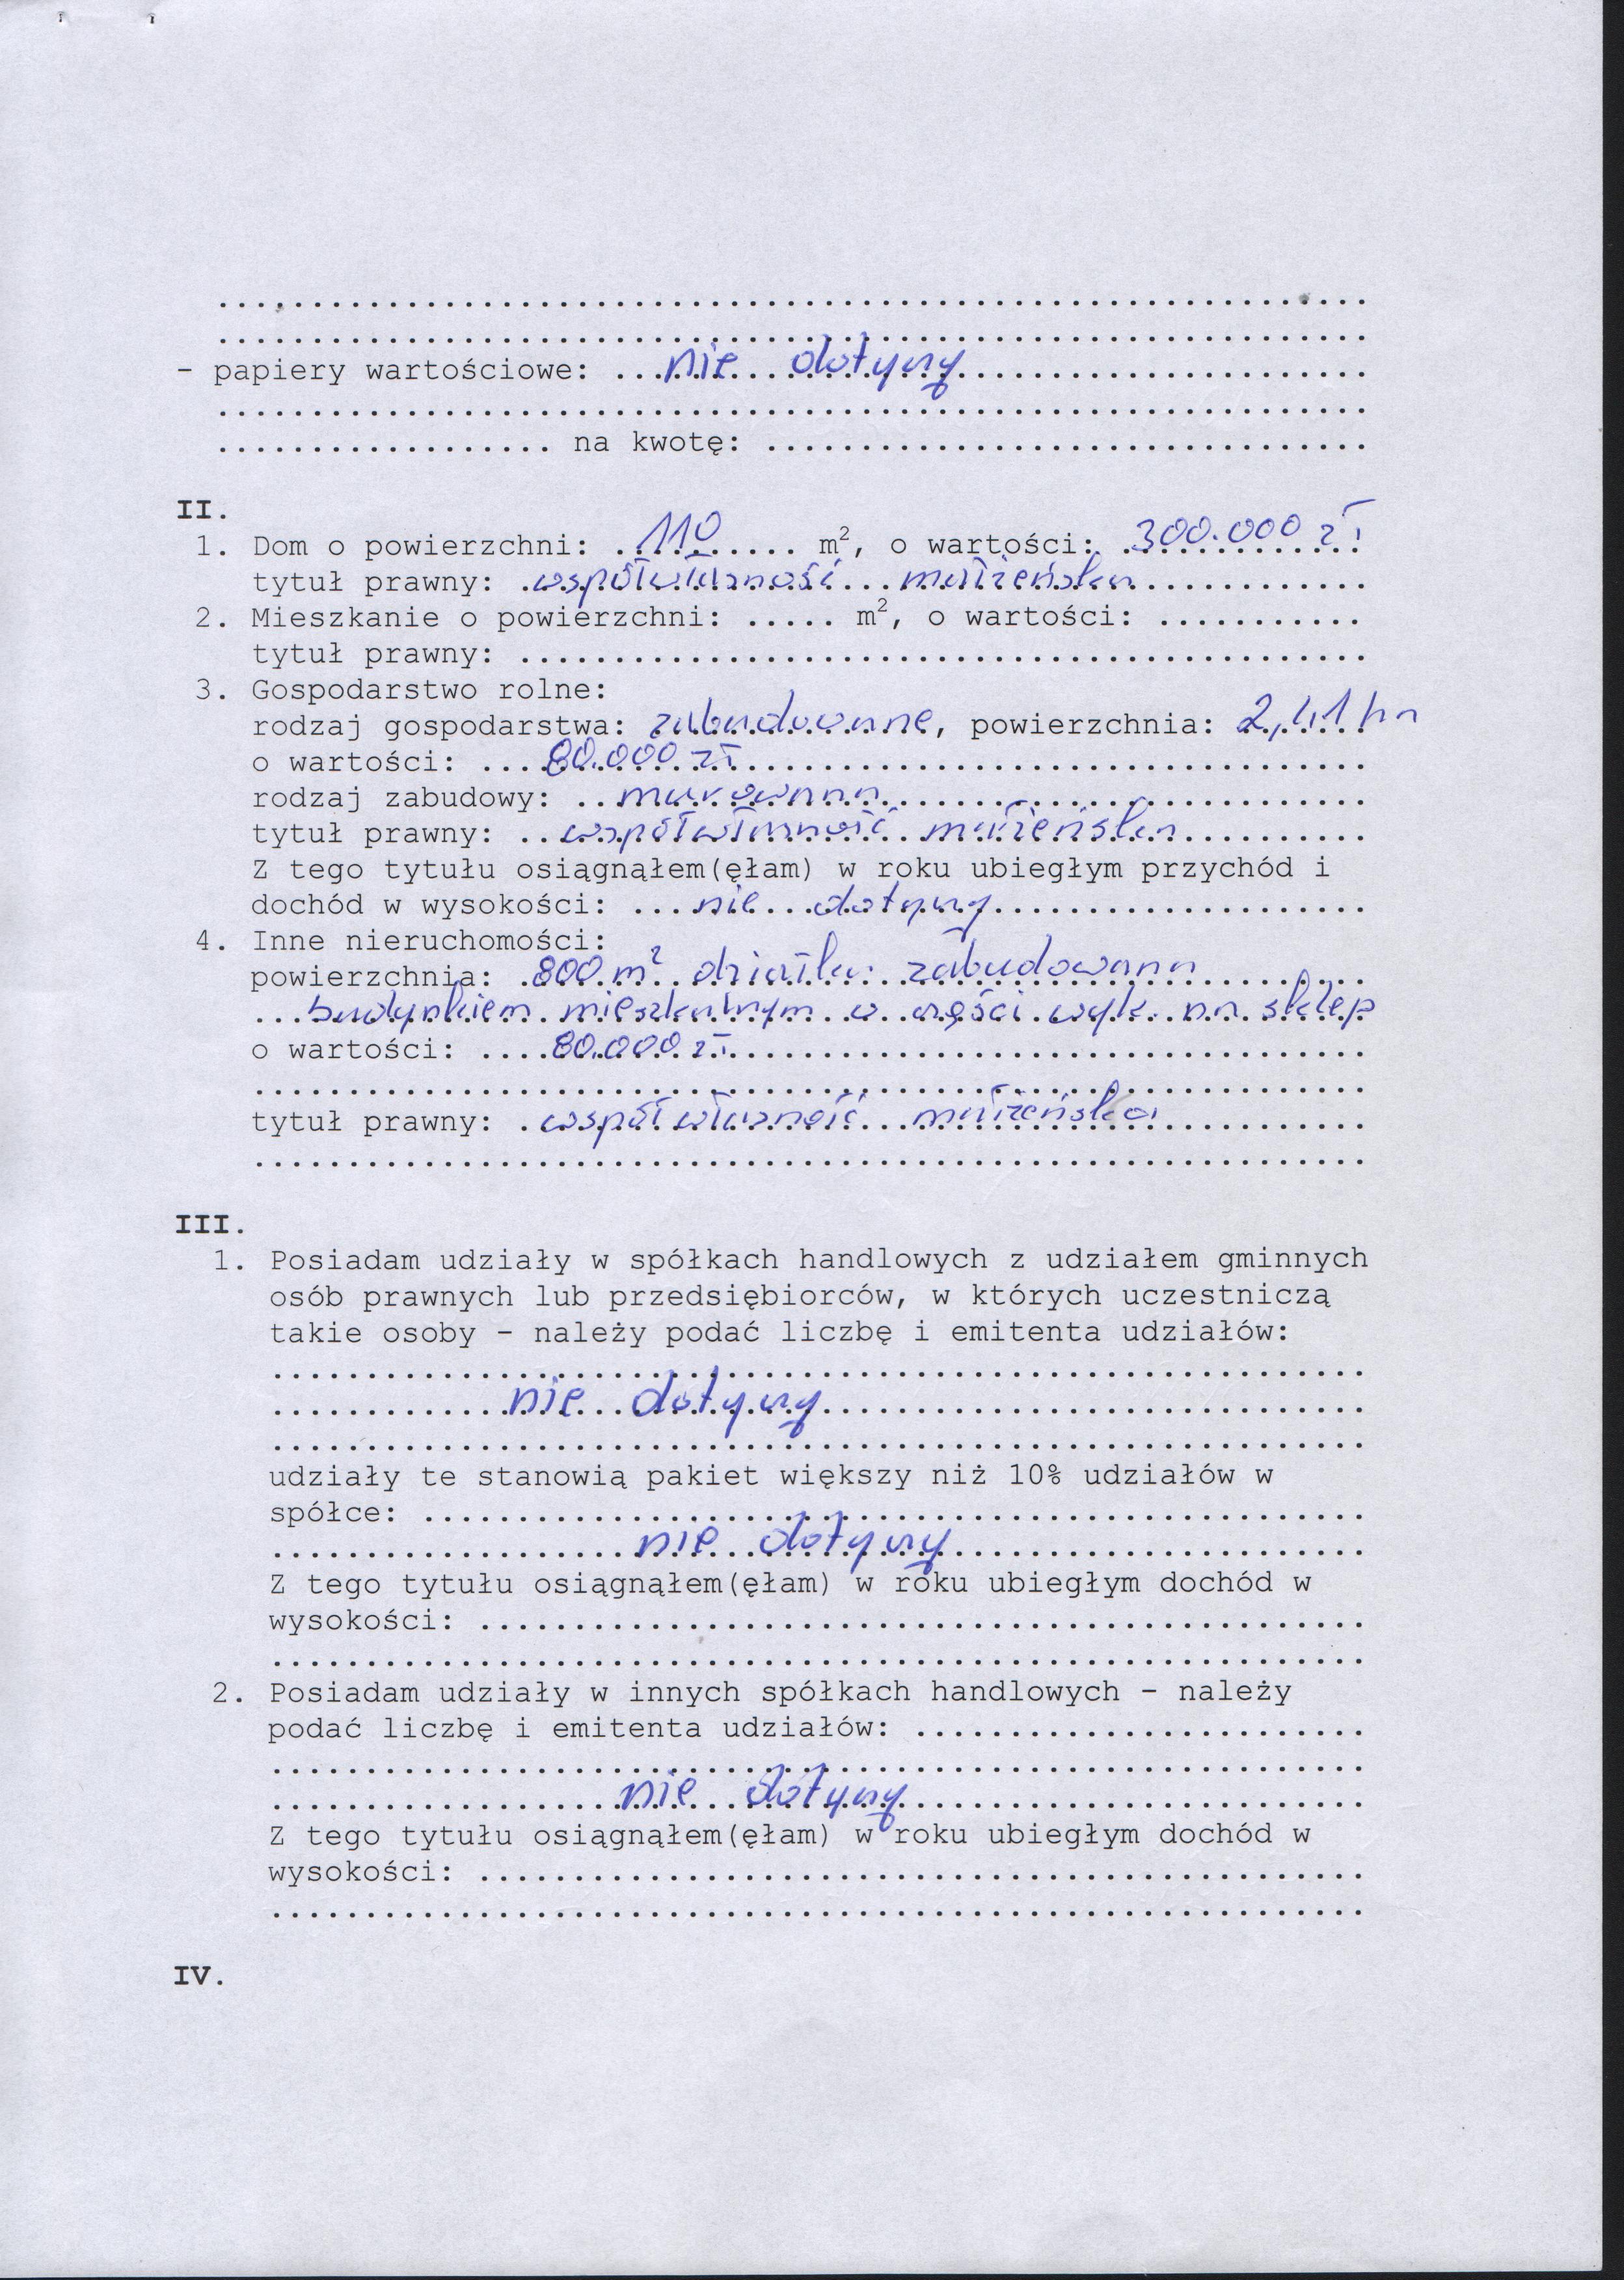 ..............................................................
..............................................................
- papiery wartościowe: ...nie dotyczy......................
..............................................................
.................. na kwotę: ................................
II.
1. Dom o powierzchni: ..110..... m², o wartości: .300.000 zł
tytuł prawny: .współwłasność...małżeńska............
2. Mieszkanie o powierzchni: ..... m², o wartości: ...........
tytuł prawny: .............................................
3. Gospodarstwo rolne:
rodzaj gospodarstwa: zabudowane, powierzchnia: 2,41 ha
o wartości: ...80.000 zł..................................
rodzaj zabudowy: ..murowana..........................
tytuł prawny: ..współwłasność..małżeńska..........
Z tego tytułu osiągnąłem(ęłam) w roku ubiegłym przychód i
dochód w wysokości: ...nie...dotyczy....................
4. Inne nieruchomości:
powierzchnia: .800 m² działka zabudowana.........
...budynkiem mieszkalnym w części wyk. na sklep
o wartości: ....80.000 zł..................................
............................................................
tytuł prawny: .współwłasność...małżeńska...........
............................................................
III.
1. Posiadam udziały w spółkach handlowych z udziałem gminnych
osób prawnych lub przedsiębiorców, w których uczestniczą
takie osoby - należy podać liczbę i emitenta udziałów:
...........................................................
.............nie...dotyczy.............................
...........................................................
udziały te stanowią pakiet większy niż 10% udziałów w
spółce: ..................................................
....................nie...dotyczy......................
Z tego tytułu osiągnąłem(ęłam) w roku ubiegłym dochód w
wysokości: ...............................................
...........................................................
2. Posiadam udziały w innych spółkach handlowych - należy
podać liczbę i emitenta udziałów: ........................
...........................................................
...................nie...dotyczy.........................
Z tego tytułu osiągnąłem(ęłam) w roku ubiegłym dochód w
wysokości: ...............................................
...........................................................
IV.